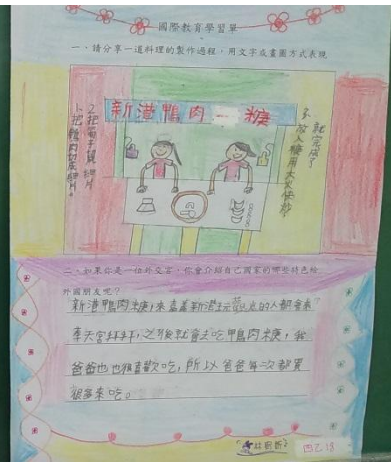 國際教育學習單
一、請分享一道料理的製作過程,用文字或畫圖方式表現
新港鴨肉 糖
1.把鴨肉切成細片。
2.把筍子切細片
3.放入糖用大火快炒
就完成了
二、如果你是一位外交官,你會介紹自己國家的哪些特色給
外國朋友呢?
新港鴨肉焿,來嘉義新港玩的人都會來
奉天宮拜拜,之後就會去吃鴨肉焿,我
爸爸也很喜歡吃,所以爸爸每次都買
很多來吃。
四乙18